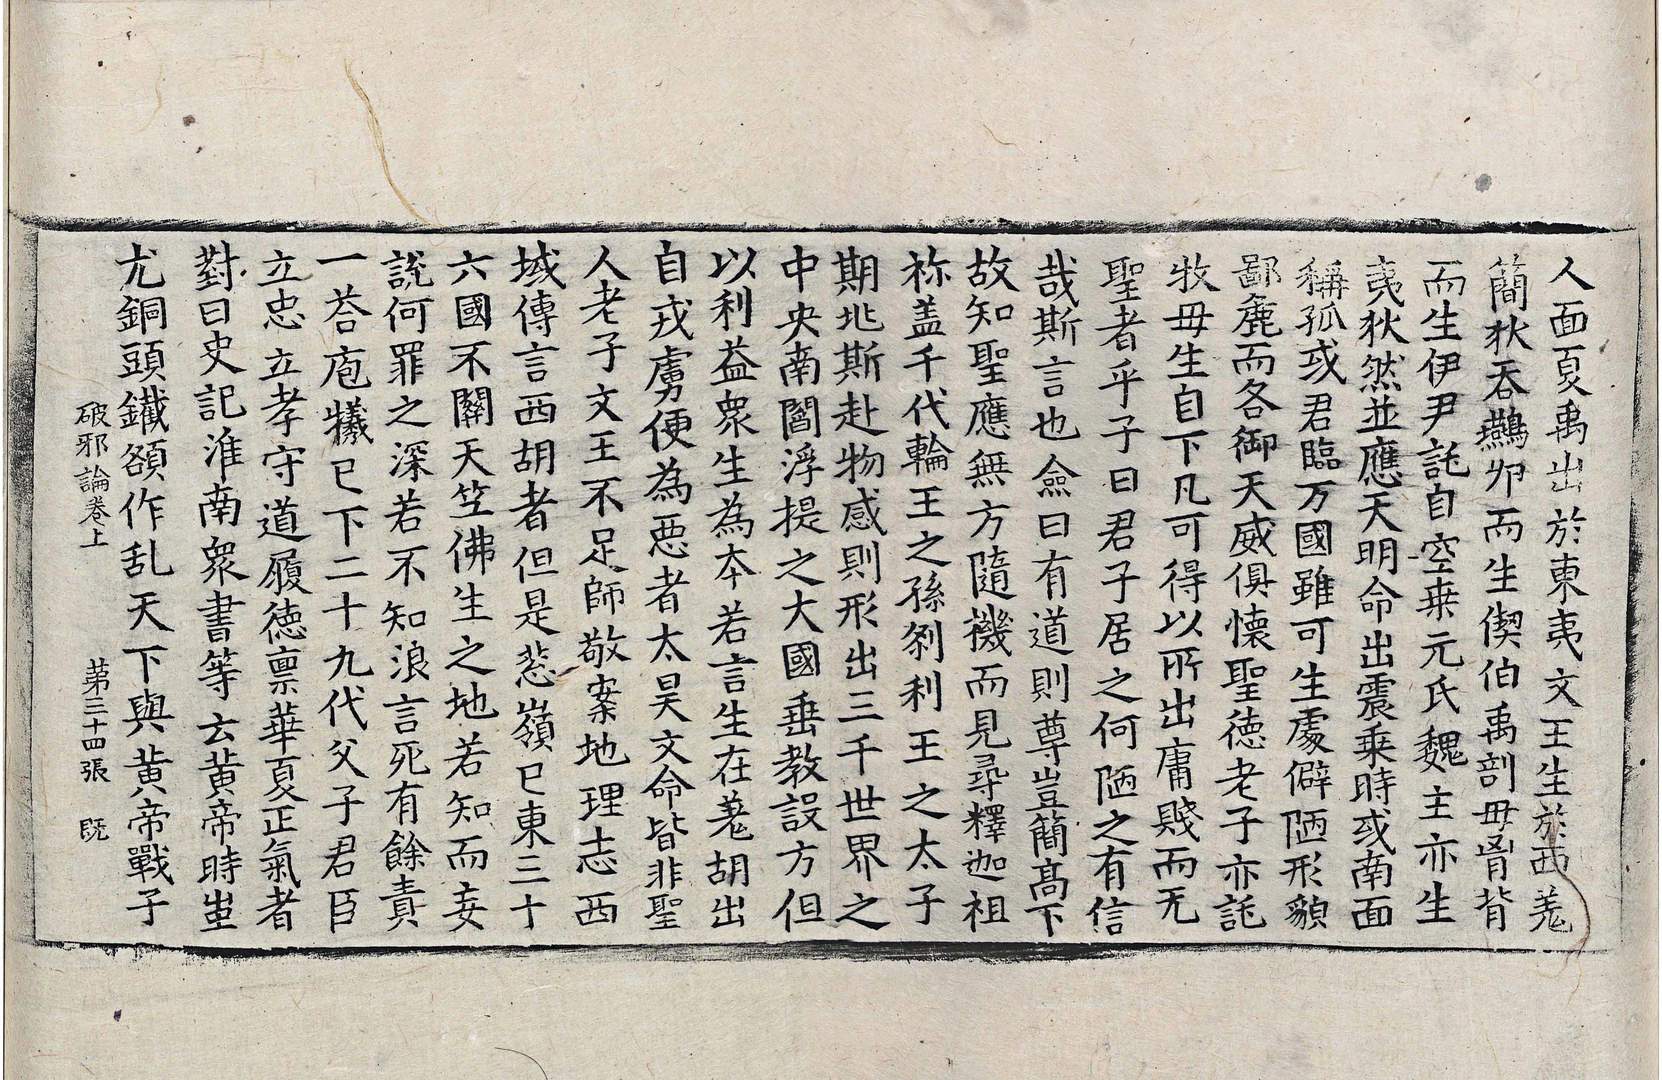 人面夏禹出於東夷文王生於西羗
簡狄吞鷰卵而生偰伯禹剖毋胷背
而生伊尹託自空桒元氏魏主亦生
夷狄然並應天明命出震乗時或南面
稱孤或君臨万國雖可生處僻陋形貌
鄙麁而各御天威俱懷聖德老子亦託
牧毋生自下凡可得以所出庸賤而无
聖者乎子曰君子居之何陋之有信
哉斯言也僉曰有道則尊豈簡髙下
故知聖應無方隨機而見尋釋迦祖
祢盖千代輪王之孫刹利王之太子
期兆斯赴物感則形出三千世界之
中央南閻浮提之大國垂教設方但
以利益衆生為本若言生在羗胡出
自戎虜便為惡者太昊文命皆非聖
人老子文王不足師敬案地理志西
域傳言西胡者但是葱嶺已東三十
六國不關天竺佛生之地若知而妄
說何罪之深若不知浪言死有餘責
一荅庖犧已下二十九代父子君臣
立忠立孝守道履德禀華夏正氣者
對曰史記淮南衆書等云黄帝時蚩
尤銅頭鐵額作乱天下與黄帝戰于
破邪論卷上 第三十四張 旣